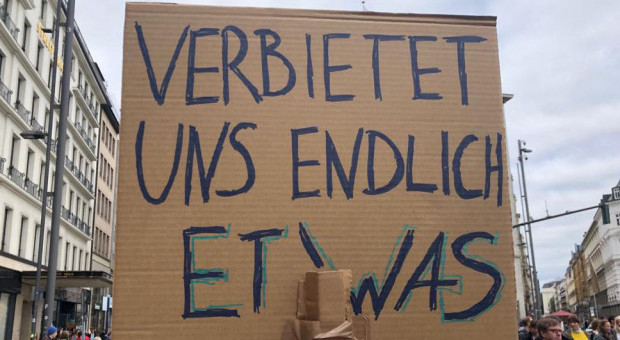 VERBIETET
UNS ENDLICH
ETWAS